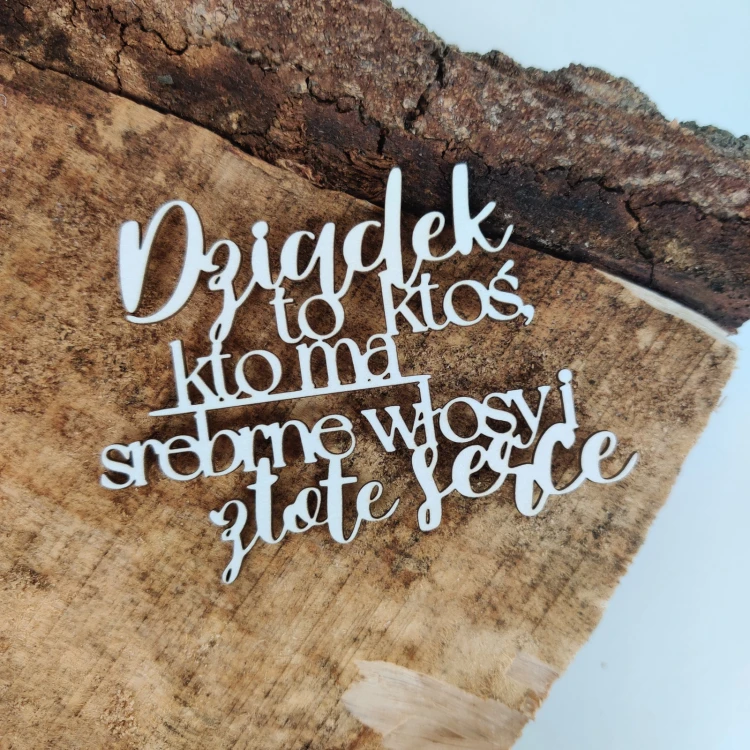 Dziadek
to ktoś,
kto ma
srebrne włosy i
złote serce